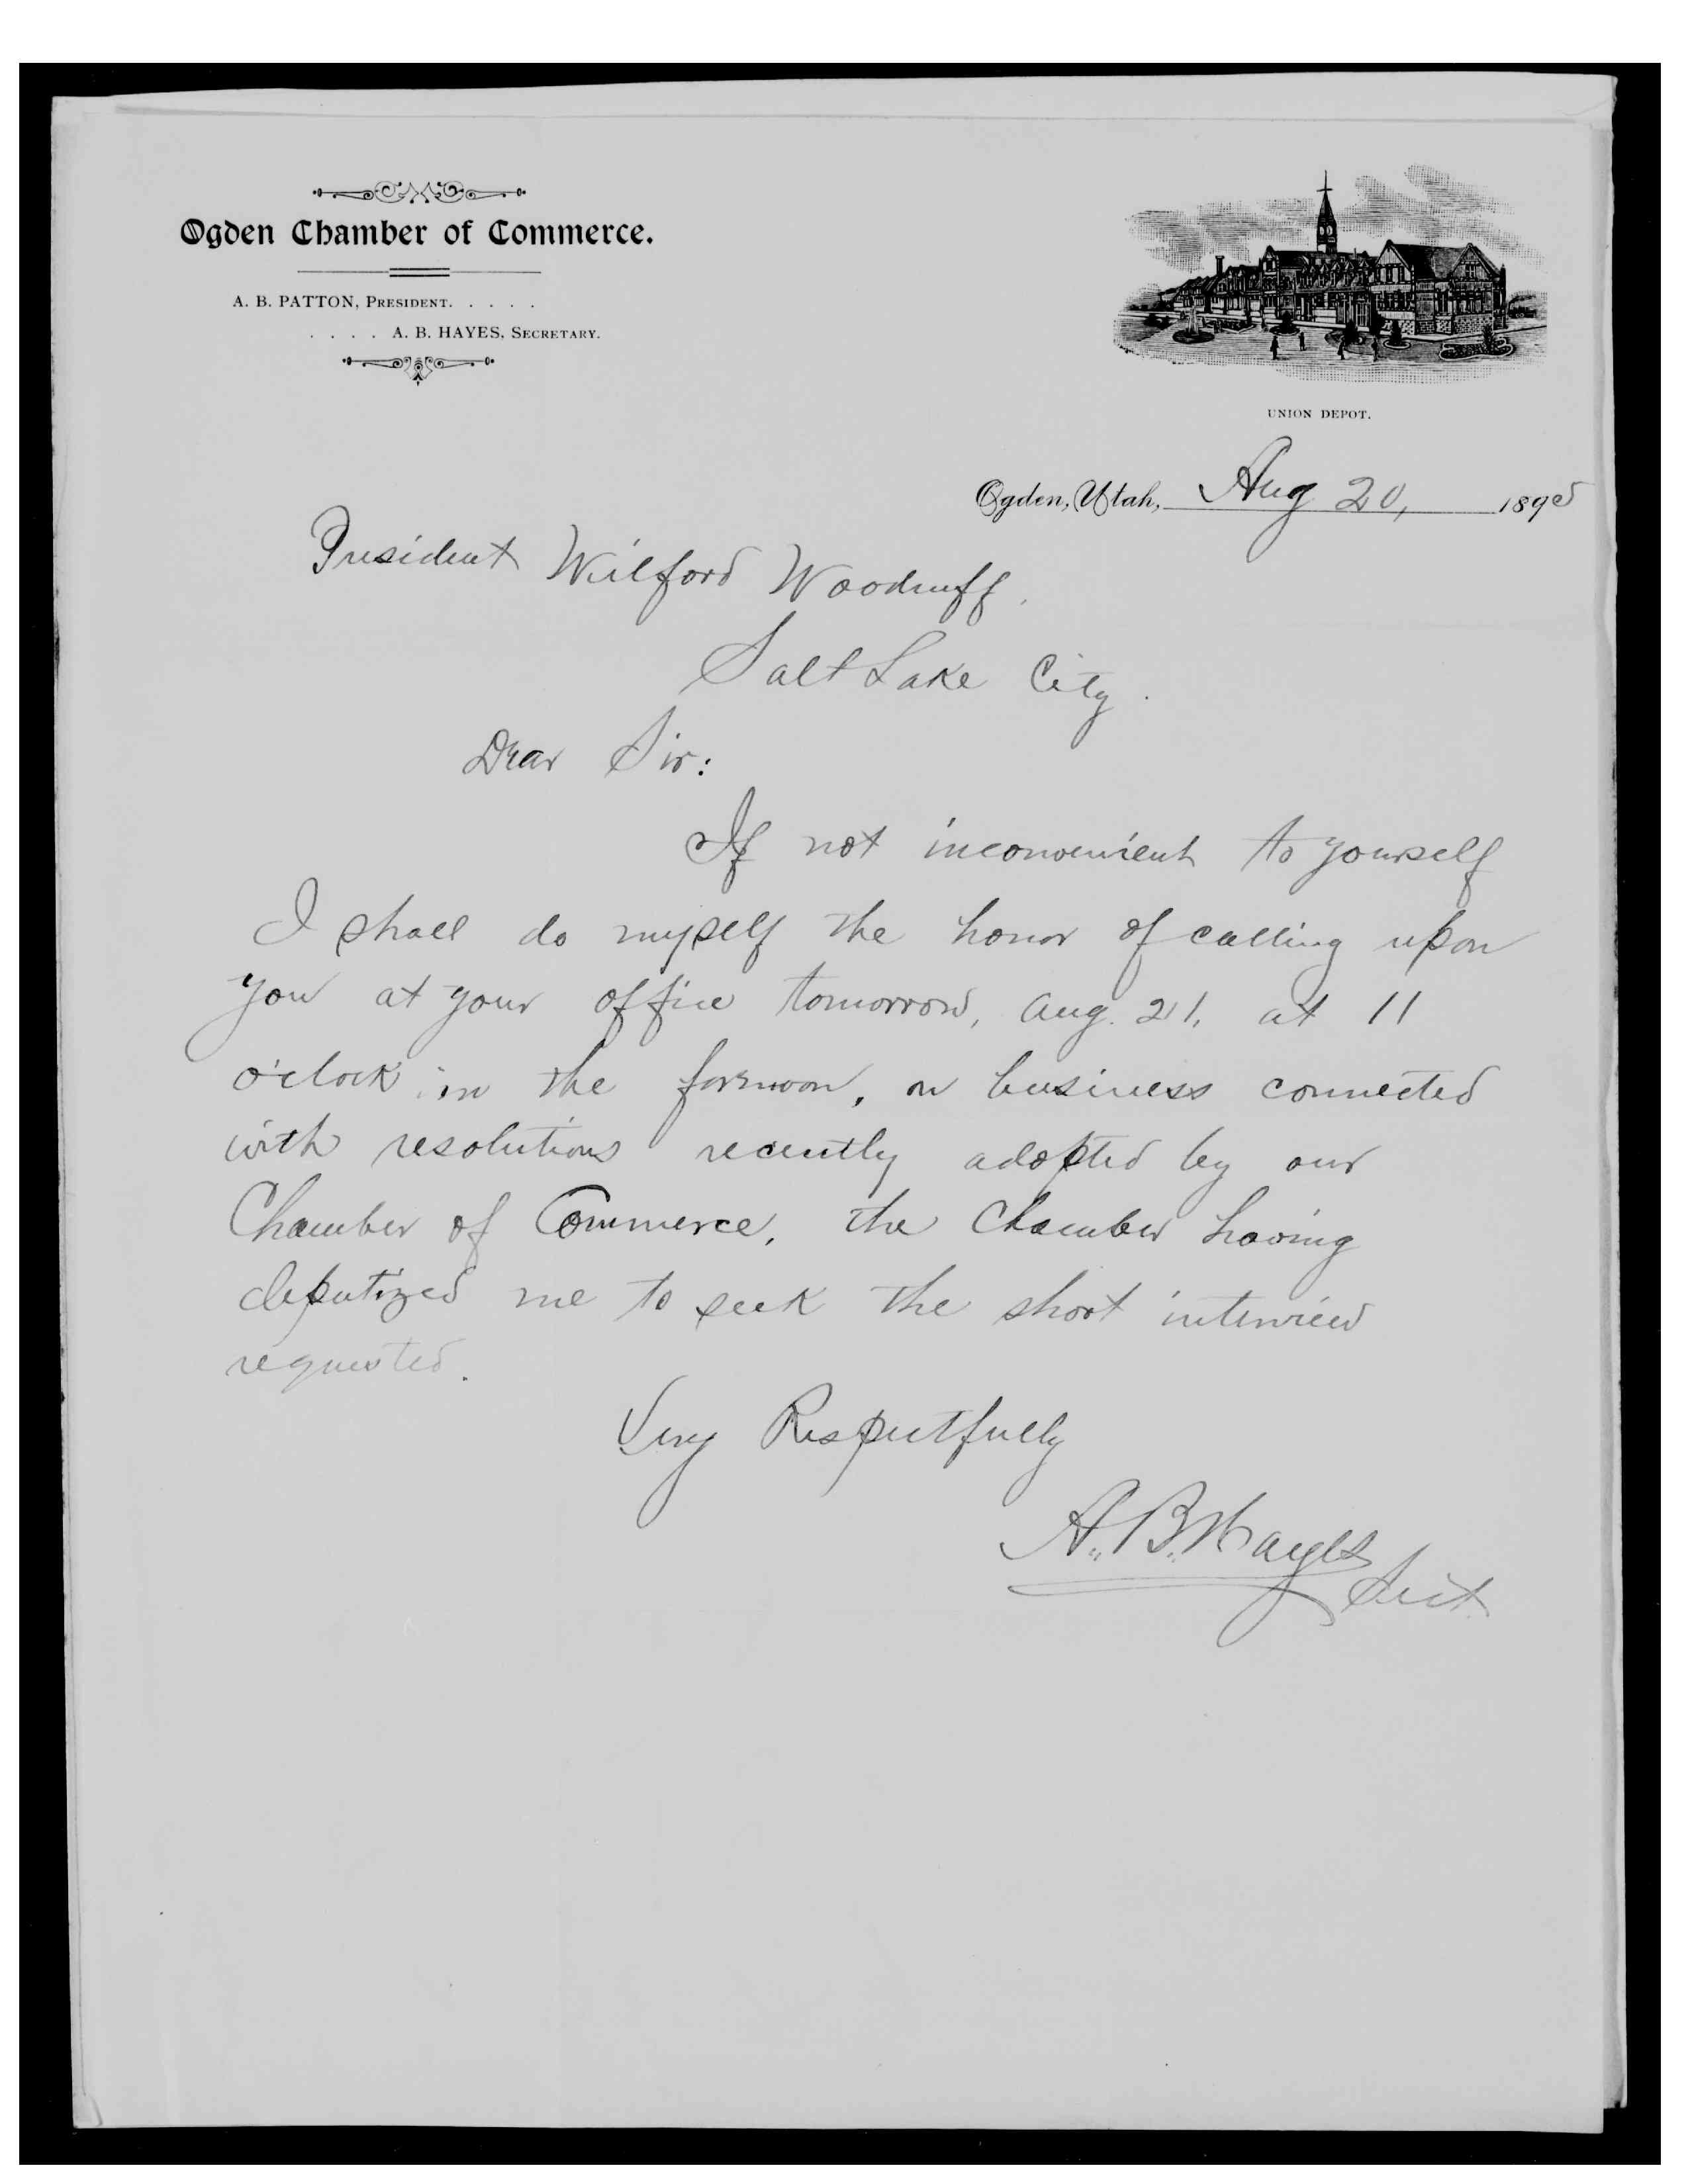 Ogden Chamber of Commerce.
A. B. PATTON, PRESIDENT. . . . .
. . . . A. B. HAYES, SECRETARY.
UNION DEPOT.
Ogden, Utah, Aug 20, 1895
President Wilford Woodruff.
Salt Lake City.
Dear Sir:
If not inconvenient to yourself
I shall do myself the honor of calling upon
you at your office tomorrow, Aug. 21, at 11
o'clock in the fornoon, on business connected
with resolutions recently adopted by our
Chamber of Commerce, the Chamber having
deputized me to seek the short interview
requested.
Very Respectfully
A. B. Hayes
Sect